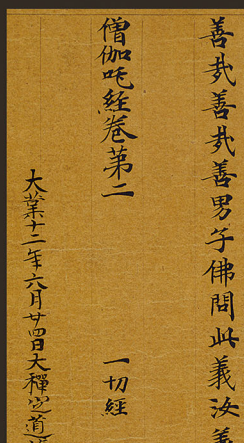 善哉善哉善男子佛問此義汝
僧伽吒經卷第二 一切經
大業十二年六月廿四日大禪定道